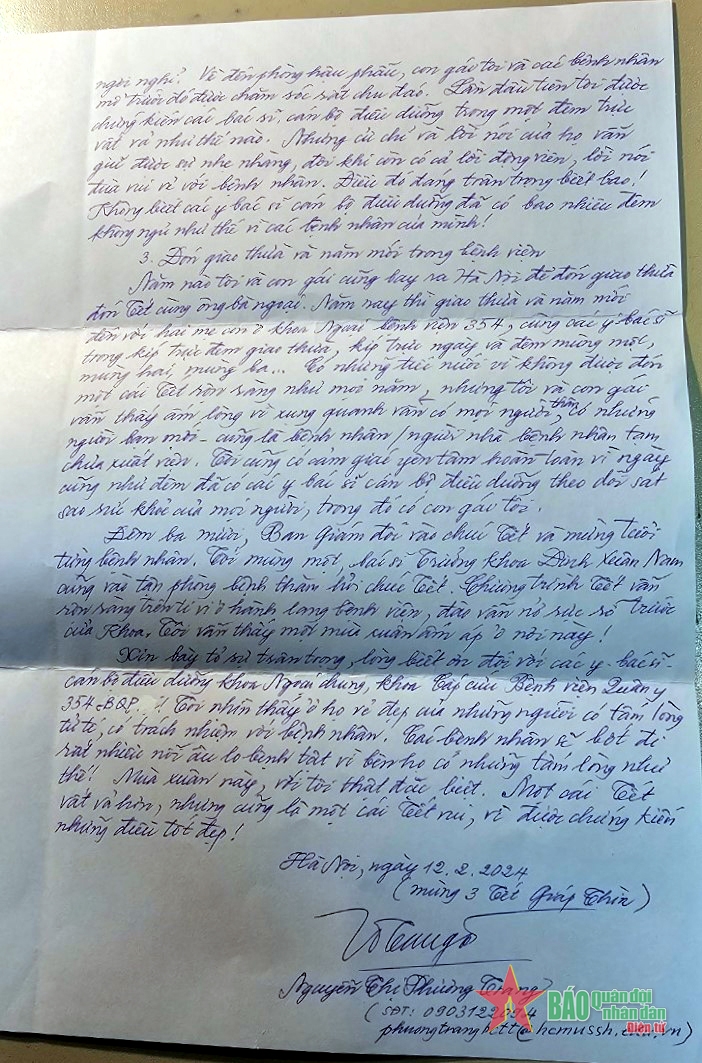 ngơi nghỉ! Về đến phòng hậu phẫu, con gái tôi và các bệnh nhân
mổ trước đó được chăm sóc rất chu đáo. Lần đầu tiên tôi được
chứng kiến các bác sĩ, cán bộ điều dưỡng trong một đêm trực
vất vả như thế nào. Nhưng cử chỉ và lời nói của họ vẫn
giữ được sự nhẹ nhàng, đôi khi còn có cả lời động viên, lời nói
đùa vui vẻ với bệnh nhân. Điều đó đáng trân trọng biết bao!
Không biết các y bác sĩ cán bộ điều dưỡng đã có bao nhiêu đêm
không ngủ như thế vì các bệnh nhân của mình!
3. Đón giao thừa và năm mới trong bệnh viện
Năm nào tôi và con gái cũng bay ra Hà Nội để đón giao thừa
đón Tết cùng ông bà ngoại. Năm nay thì giao thừa và năm mới
đến với hai mẹ con ở khoa Ngoại bệnh viện 354, cùng các y bác sĩ
trong kíp trực đêm giao thừa, kíp trực ngày và đêm mùng một,
mùng hai, mùng ba... Có những tiếc nuối vì không được đón
một cái Tết rộn ràng như mọi năm, nhưng tôi và con gái
vẫn thấy ấm lòng vì xung quanh vẫn có mọi người thân, có những
người bạn mới - cũng là bệnh nhân / người nhà bệnh nhân tạm
chưa xuất viện. Tôi cũng có cảm giác yên tâm hoàn toàn vì ngày
cũng như đêm đã có các y bác sĩ cán bộ điều dưỡng theo dõi sát
sao sức khỏe của mọi người, trong đó có con gái tôi.
Đêm ba mươi, Ban Giám đốc vào chúc Tết và mừng tuổi
từng bệnh nhân. Tối mùng một, bác sĩ Trưởng khoa Đinh Xuân Nam
cũng vào tận phòng bệnh thăm hỏi chúc Tết. Chương trình Tết vẫn
rộn ràng trên ti vi ở hành lang bệnh viện, đào vẫn nở rực rỡ trước
cửa Khoa. Tôi vẫn thấy một mùa xuân ấm áp ở nơi này!
Xin bày tỏ sự trân trọng, lòng biết ơn đối với các y - bác sĩ -
cán bộ điều dưỡng khoa Ngoại chung, khoa Cấp cứu Bệnh viện Quân y
354-BQP! Tôi nhìn thấy ở họ vẻ đẹp của những người có tấm lòng
tử tế, có trách nhiệm với bệnh nhân. Các bệnh nhân sẽ bớt đi
rất nhiều nỗi âu lo bệnh tật vì bên họ có những tấm lòng như
thế! Mùa xuân này, với tôi thật đặc biệt. Một cái Tết
vất vả hơn, nhưng cũng là một cái Tết vui, vì được chứng kiến
những điều tốt đẹp!
Hà Nội, ngày 12.2.2024
(mùng 3 Tết Giáp Thìn)
Nguyễn Thị Phương Trang
(SĐT: 0903122094
phuongtrangbctt@hcmussh.edu.vn)
BÁO quân đội nhân dân
Điện tử